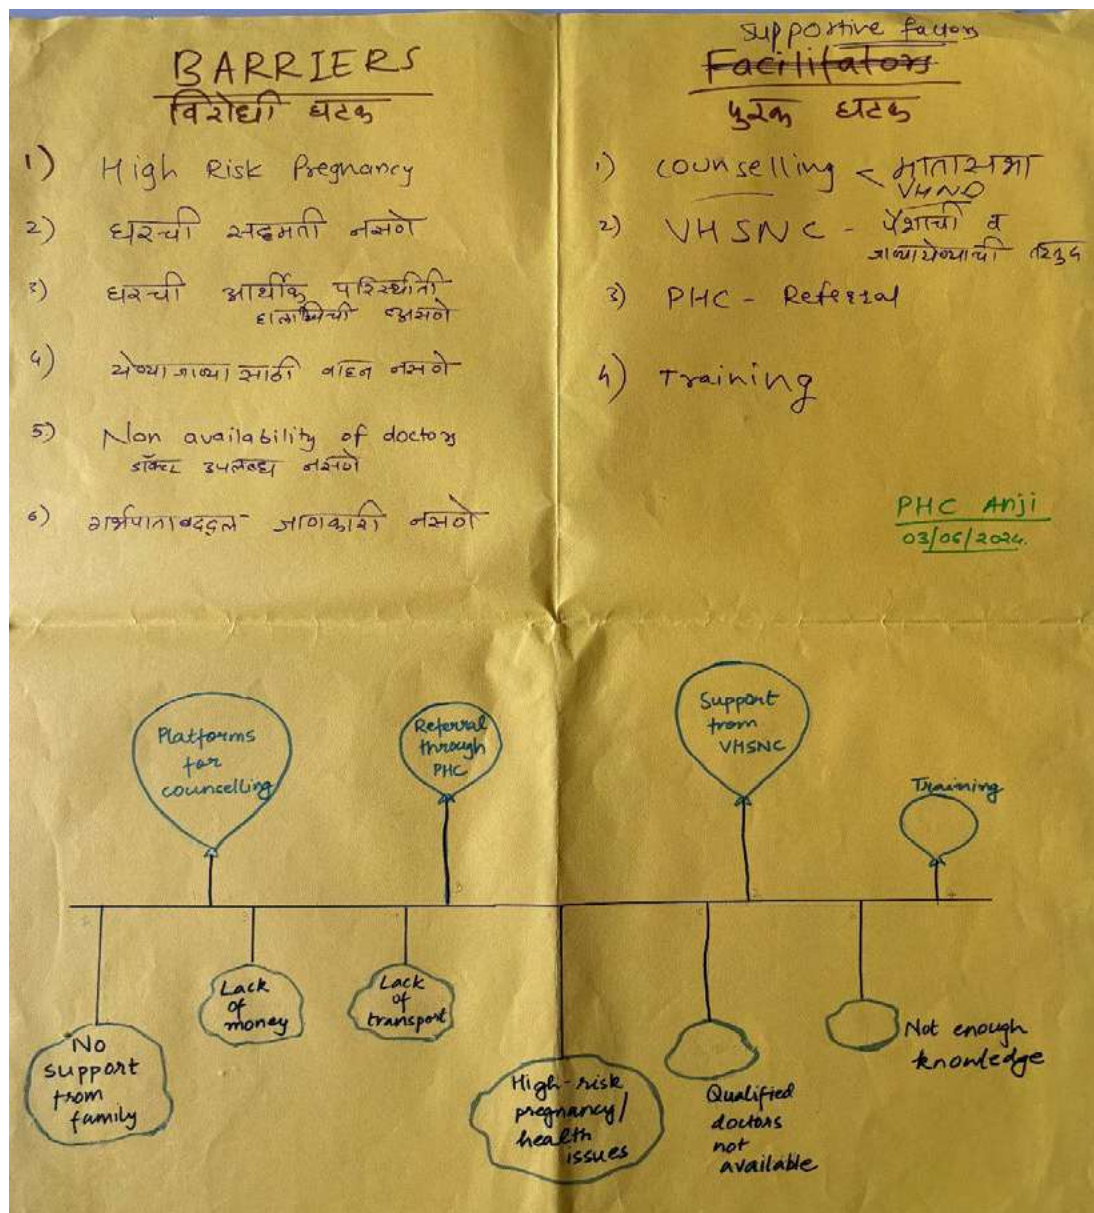 BARRIERS
विरोधी घटक
1) High Risk Pregnancy
2) घरची सहमती नसणे
3) घरची आर्थिक परिस्थीती
हलाखिची असणे
4) येण्या जाण्या साठी वाहन नसणे
5) Non availability of doctors
डॉक्टर उपलब्ध नसणे
6) गर्भपाताबद्दल जाणकारी नसणे
Supportive factors
Facilitators
पुरक घटक
1) Counselling < मातासभा
VHND
2) VHSNC - पैशाची व
जाण्यायेण्याची तरतुद
3) PHC - Referral
4) Training
PHC Anji
03/06/2024.
Platforms
for
counselling
Referral
through
PHC
Support
from
VHSNC
Training
No
support
from
family
Lack
of
money
Lack
of
transport
High-risk
pregnancy/
health
issues
Qualified
doctors
not
available
Not enough
knowledge